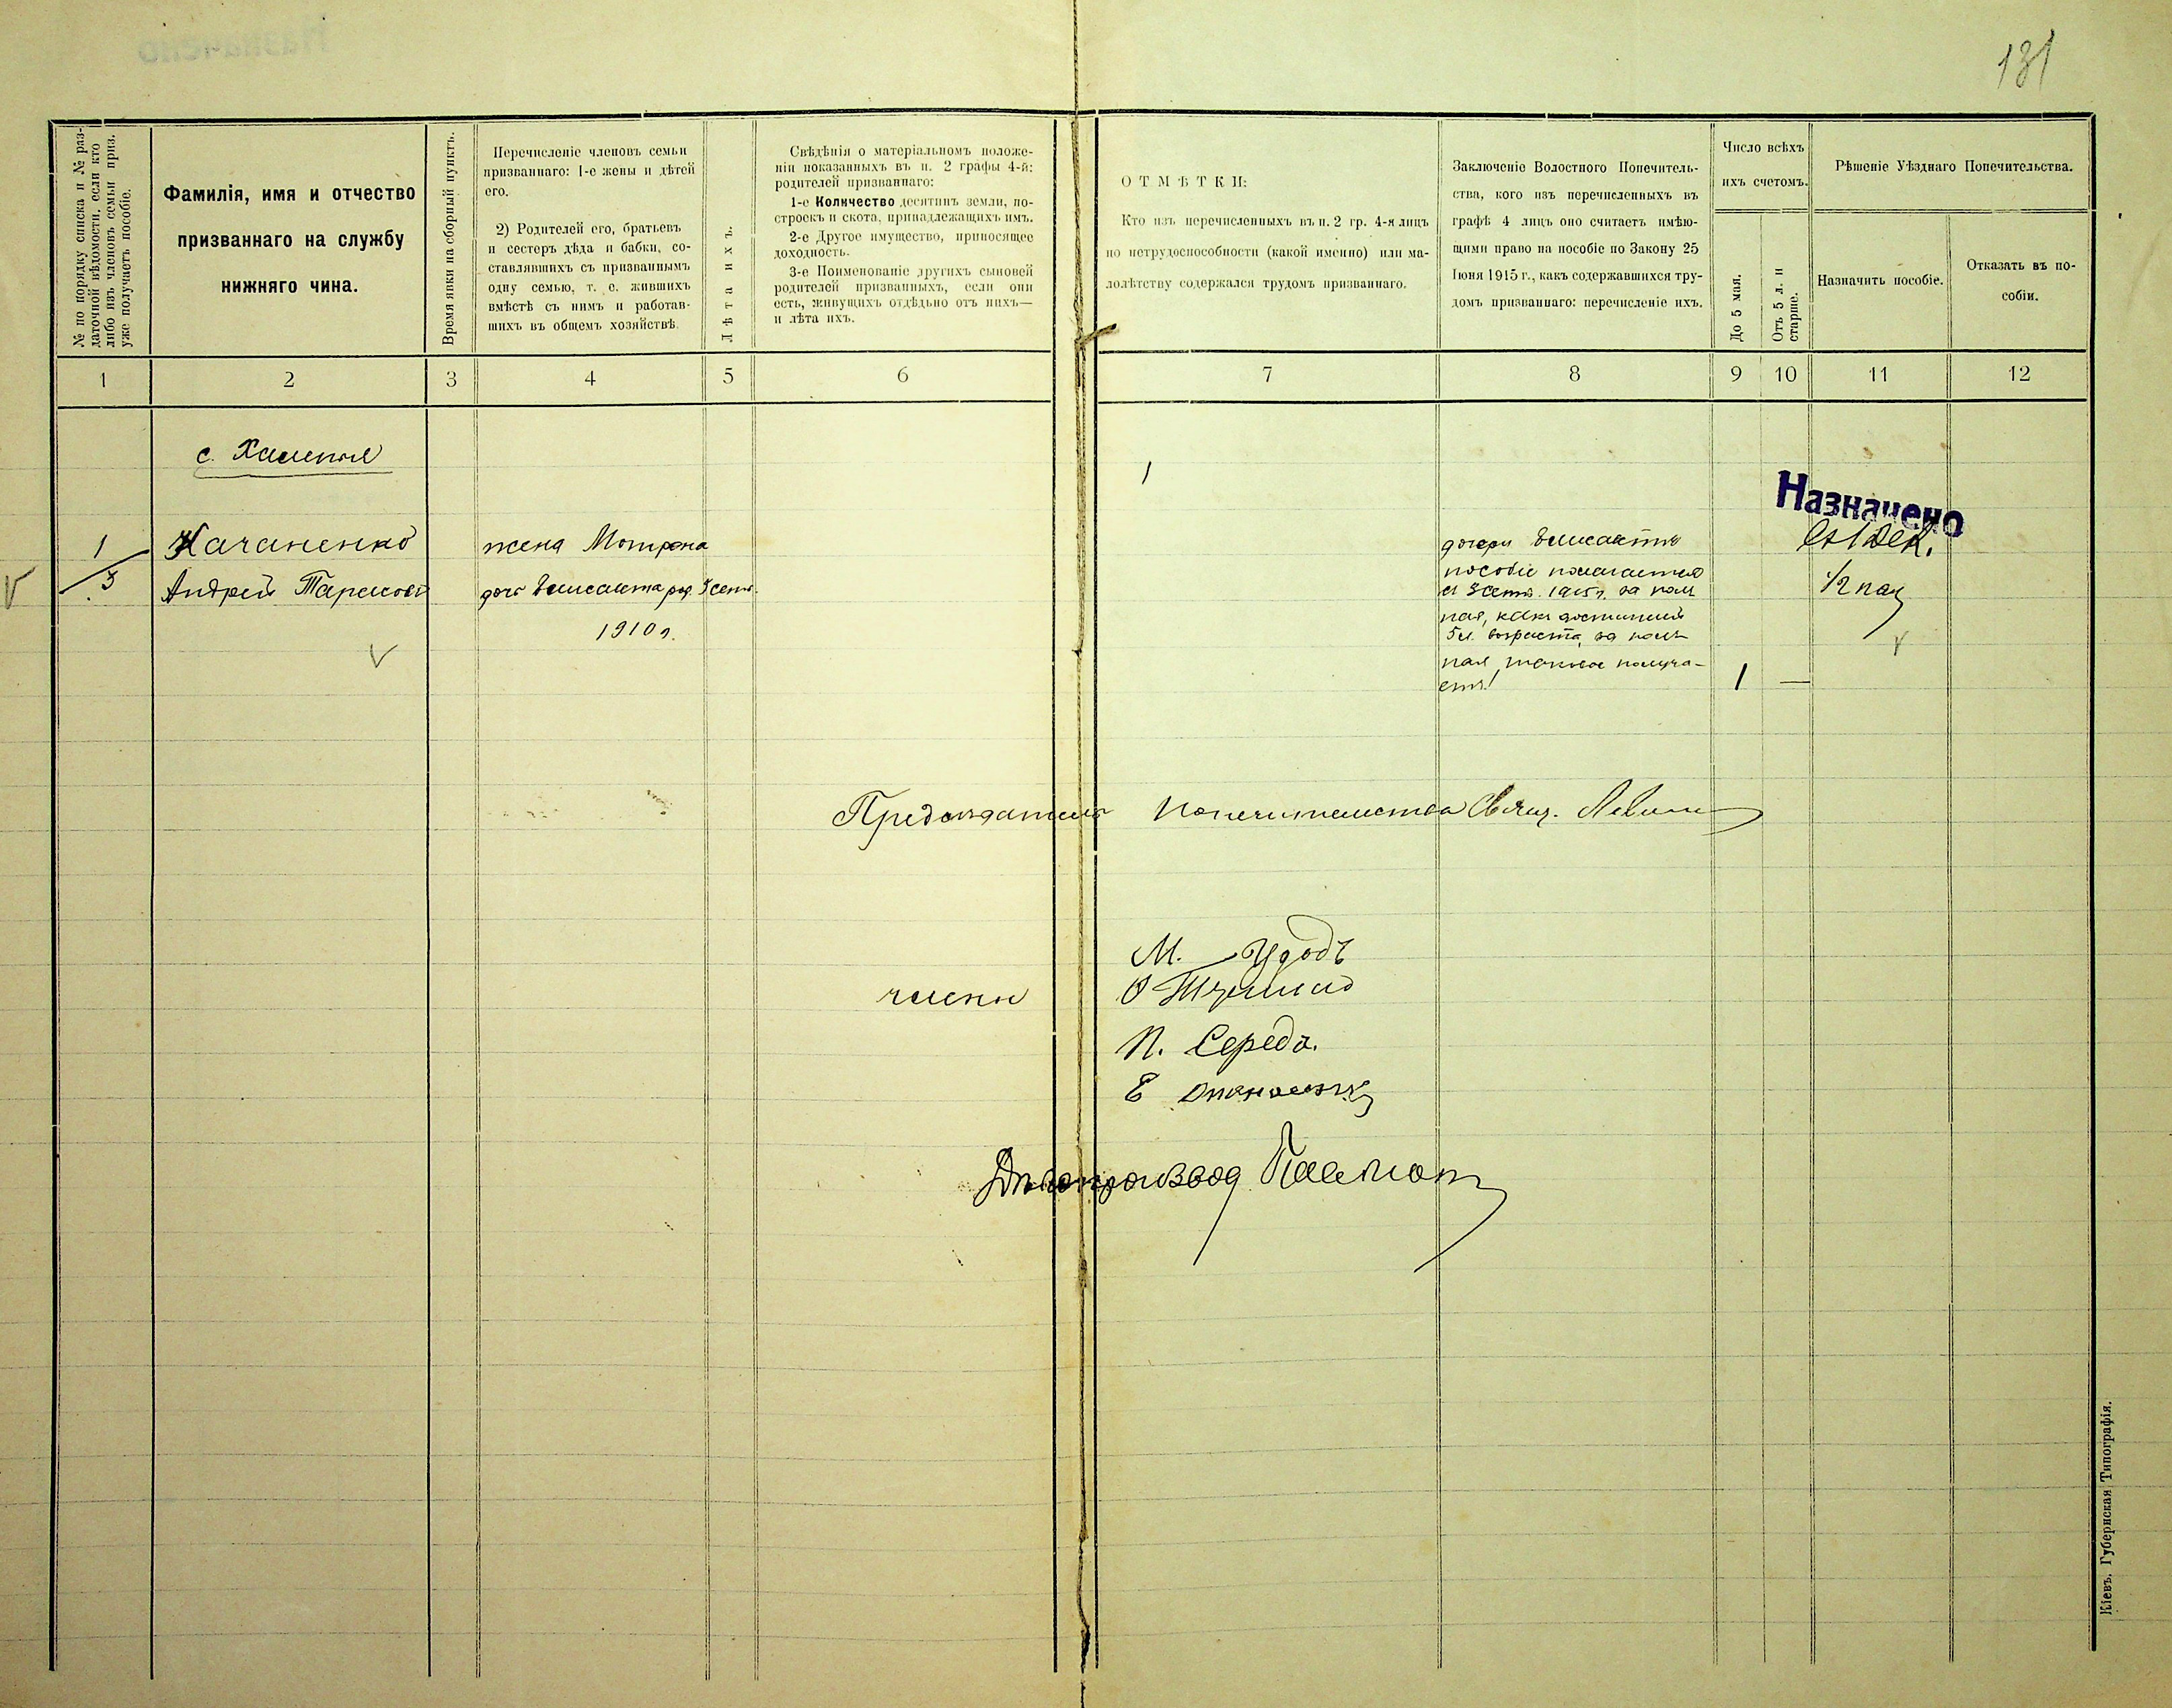 131
№ по порядку списка и № раз-
даточной вѣдомости, если кто
либо изъ членовъ семьи приз.
уже получаетъ пособіе.
Фамилія, имя и отчество
призваннаго на службу
нижняго чина.
Время явки на сборный пунктъ.
Перечисленіе членовъ семьи
призваннаго: 1-е жены и дѣтей
его.
2) Родителей его, братьевъ
и сестеръ дѣда и бабки, со-
ставлявшихъ съ призваннымъ
одну семью, т. е. жившихъ
вмѣстѣ съ нимъ и работав-
шихъ въ общемъ хозяйствѣ.
Лѣта ихъ.
Свѣдѣнія о матеріальномъ положе-
ніи показанныхъ въ п. 2 графы 4-й:
родителей призваннаго:
1-е Количество десятинъ земли, по-
строекъ и скота, принадлежащихъ имъ.
2-е Другое имущество, приносящее
доходность.
3-е Поименованіе другихъ сыновей
родителей призванныхъ, если они
есть, живущихъ отдѣльно отъ нихъ—
и лѣта ихъ.
ОТМѢТКИ:
Кто изъ перечисленныхъ въ п. 2 гр. 4-я лицъ
по нетрудоспособности (какой именно) или ма-
лолѣтству содержался трудомъ призваннаго.
Заключеніе Волостного Попечитель-
ства, кого изъ перечисленныхъ въ
графѣ 4 лицъ оно считаетъ имѣю-
щими право на пособіе по Закону 25
Іюня 1915 г., какъ содержавшихся тру-
домъ призваннаго: перечисленіе ихъ.
Число всѣхъ
ихъ счетомъ.
До 5 мая.
Отъ 5 л. и
старше.
Рѣшеніе Уѣзднаго Попечительства.
Назначить пособіе.
Отказать въ по-
собіи.
1 2 3 4 5 6 7 8 9 10 11 12
с. Халепья
1
Назначено
1/3
Качаненко
Андрей Тарасовъ
жена Мотрона
дочь Елисавета род. 5 сент.
1910 г.
дочери Елисаветѣ
пособіе полагается
съ 5 сент. 1915 г. за полн
пая, какъ достигшей
5 л. возраста, за полъ
пая, таковое получа-
етъ!
1 —
съ 1 дек.
1/2 пая
Предсѣдатель Попечительства Свящ.
члены
М. Удодъ
П. Середа.
Е
Дѣлопроизвод
Кіевъ. Губернская Типографія.